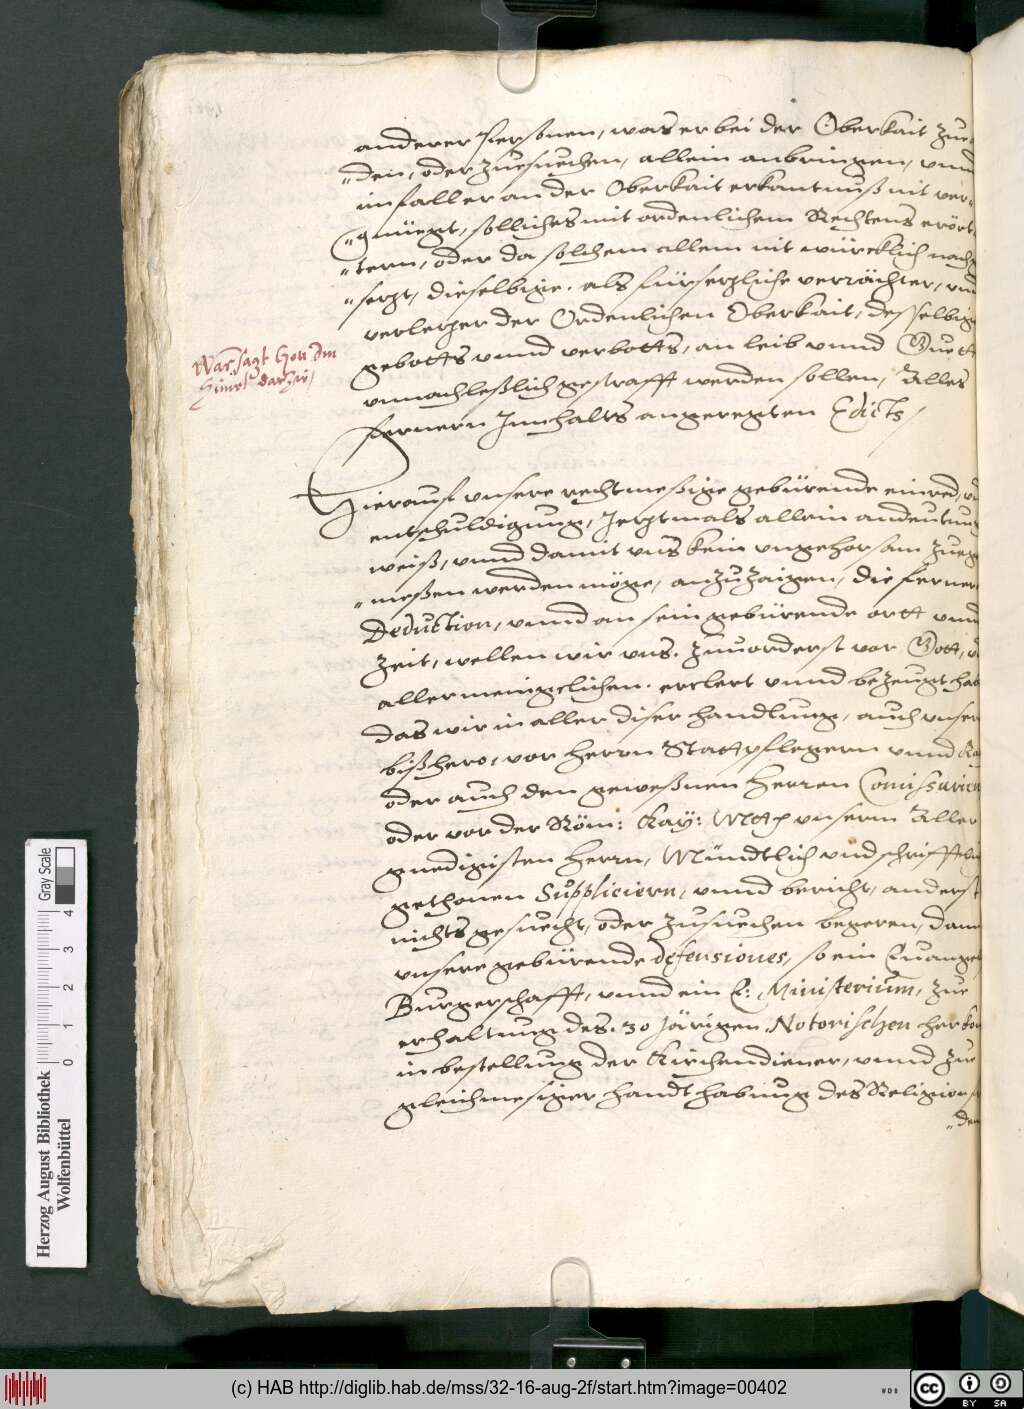 anderer Personen, was er bei der Oberkait zue-
"den, oder zuesuechen, allein anbringen, vnnd
im fall er an der Oberkait erkantnuß nit ver-
"gnüegt, solliches mit ordenlichem Rechtens erört-
"tern, oder da solchem allem nit würcklich nach
"setzt, dieselbige, als fürsetzliche verrächter, vnd
verletzer der Ordenlichen Oberkait, desselbig
gebotts vnnd verbotts, an leib vnnd Guett
vnnachleßlich gestrafft werden sollen, Alles
fernern Innhalts angeregten Edicts/
Was sagt Gott Im
Himel darzu/
Hierauf vnsere rechtmeßige gebürende einred,
entschuldigung, Jetztmals allein andeutung
weiß, vnnd damit vns kein vngehorsam zuege
"meßen werden möge, anzuzaigen, die ferner
Deduction, vnnd an sein gebürende ortt vnnd
Zeit, wellen wir vns, zuuorderst vor Gott,
allermeingclichen, erclert vnnd bezeugt hab
das wir in aller diser handlung, auch vnser
bißhero, vor Herrn Stattpflegern vnnd
oder auch den geweßnen Herren Comissarien
oder vor der Röm: Kay: Mtt: vnserm Aller
gnedigisten Herrn, Mündtlich vnd schrifftlich
gethonen Suppliciern, vnnd bericht, anderst
nichts gesuecht, oder zusuechen begeren, dann
vnsere gebürende defensiones, so ein Euangel
Burgerschafft, vnnd ein E: Ministerium, zue
erhaltung des 30 Järigen Notorischen herko
in bestellung der Kirchendiener, vnnd zue
gleichmesiger handthabung des Religions
"den
Herzog August Bibliothek
Wolfenbüttel
0 1 2 3 4
Gray Scale
(c) HAB http://diglib.hab.de/mss/32-16-aug-2f/start.htm?image=00402
WDB
CC BY SA